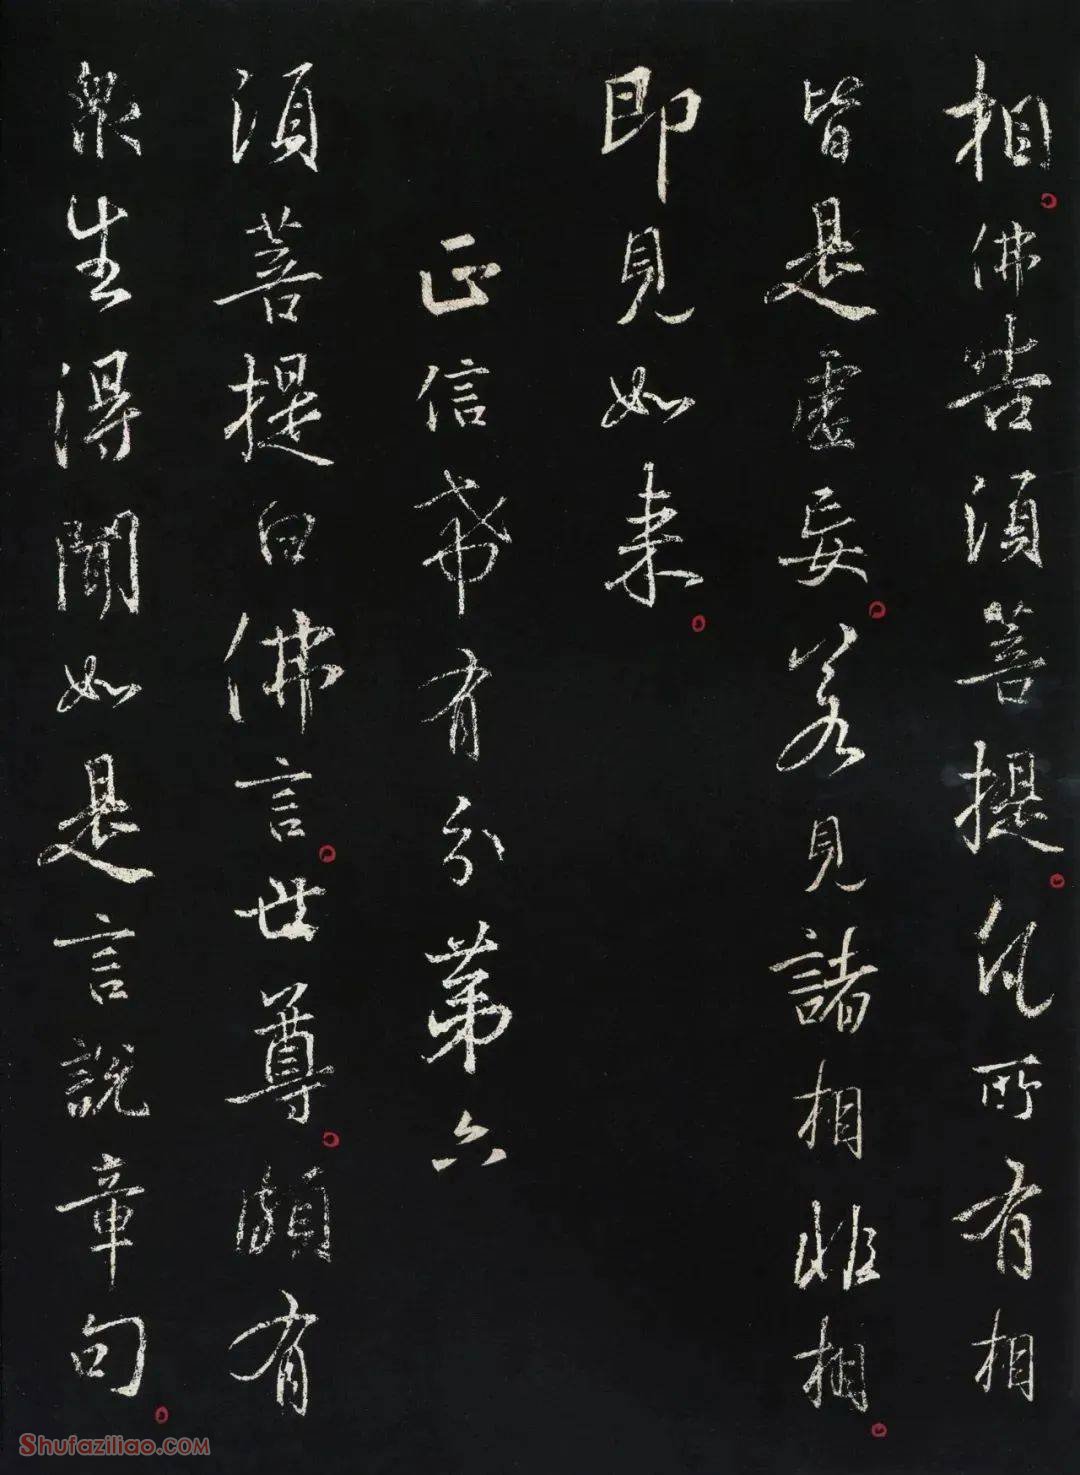 相佛告須菩提凡所有相
皆是虛妄若見諸相非相
即見如来
正信希有分第六
須菩提白佛言世尊頗有
衆生得聞如是言說章句
SHUFAZILIAO.COM